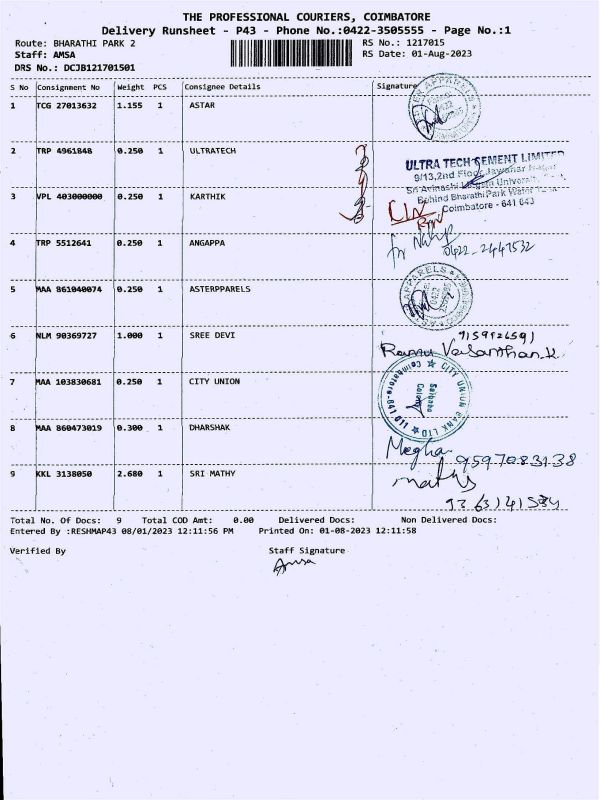 THE PROFESSIONAL COURIERS, COIMBATORE
Delivery Runsheet - P43 - Phone No.:0422-3505555 - Page No.:1
Route: BHARATHI PARK 2 RS No.: 1217015
Staff: AMSA RS Date: 01-Aug-2023
DRS No.: DCJB121701501
S No Consignment No Weight PCS Consignee Details Signature
1 TCG 27013632 1.155 1 ASTAR
2 TRP 4961848 0.250 1 ULTRATECH
ULTRA TECH CEMENT LIMITED
9/13,2nd Floor, Jawahar Nagar
3 VPL 403000000 0.250 1 KARTHIK
Behind Bharathi Park Water
Coimbatore - 641 043
4 TRP 5512641 0.250 1 ANGAPPA
0422-2447532
5 MAA 861040074 0.250 1 ASTERPPARELS
6 NLM 90369727 1.000 1 SREE DEVI
7159126591
Ramu Vasanthan.k
7 MAA 103830681 0.250 1 CITY UNION
CITY UNION BANK LTD
Saibaba Colony
8 MAA 860473019 0.300 1 DHARSHAK
Megha 9597083138
9 KKL 3138050 2.680 1 SRI MATHY
mathy
Total No. Of Docs: 9 Total COD Amt: 0.00 Delivered Docs: Non Delivered Docs:
Entered By :RESHMAP43 08/01/2023 12:11:56 PM Printed On: 01-08-2023 12:11:58
Verified By Staff Signature
Amsa